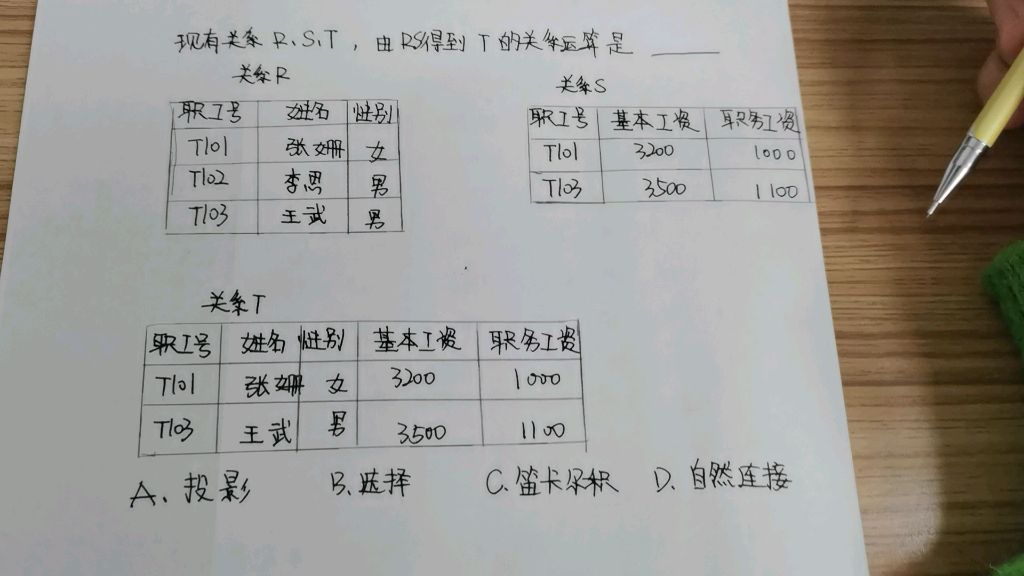 现有关系 R、S、T，由RS得到 T 的关系运算是 ____
关系R
关系S
职工号 姓名 性别
T101 张姗 女
T102 李思 男
T103 王武 男
职工号 基本工资 职务工资
T101 3200 1000
T103 3500 1100
关系T
职工号 姓名 性别 基本工资 职务工资
T101 张姗 女 3200 1000
T103 王武 男 3500 1100
A、投影 B、选择 C、笛卡尔积 D、自然连接